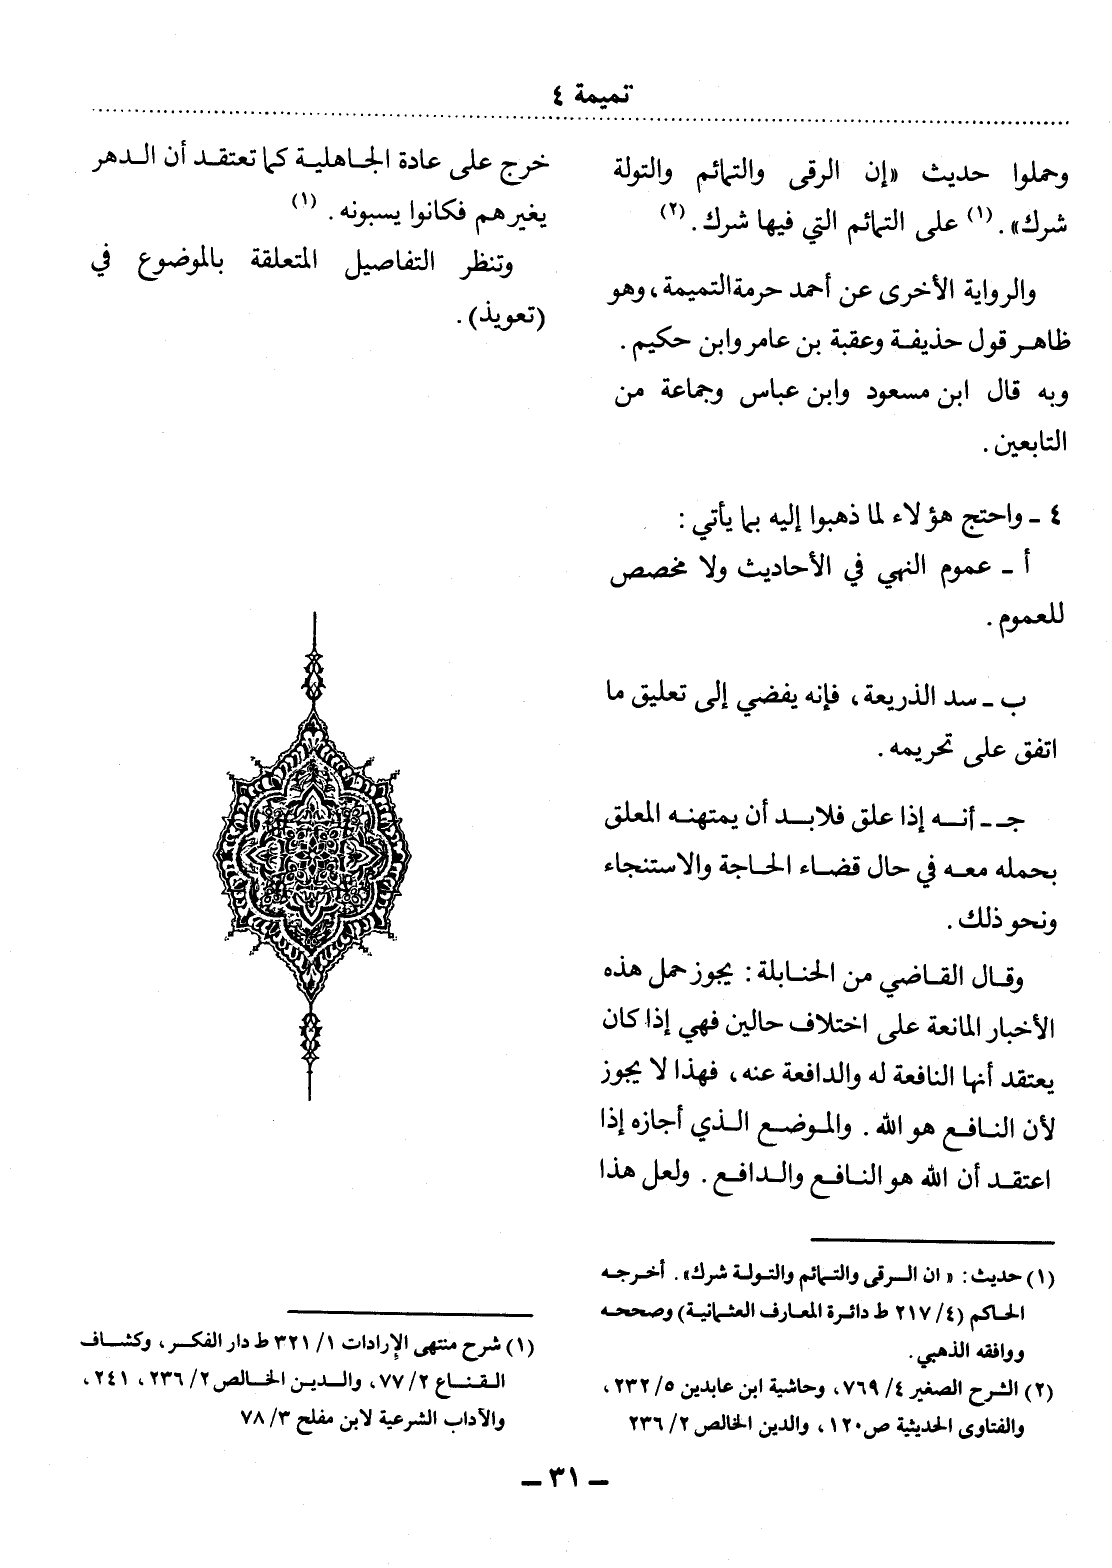 تميمة ٤
وحملوا حديث «إن الرقى والتمائم والتولة
شرك». (١) على التمائم التي فيها شرك. (٢)
والرواية الأخرى عن أحمد حرمة التميمة، وهو
ظاهر قول حذيفة وعقبة بن عامر وابن حكيم.
وبه قال ابن مسعود وابن عباس وجماعة من
التابعين.
٤ ـ واحتج هؤلاء لما ذهبوا إليه بما يأتي:
أ ـ عموم النهي في الأحاديث ولا مخصص
للعموم.
ب ـ سد الذريعة، فإنه يفضي إلى تعليق ما
اتفق على تحريمه.
جـ ـ أنه إذا علق فلابد أن يمتهنه المعلق
بحمله معه في حال قضاء الحاجة والاستنجاء
ونحو ذلك.
وقال القاضي من الحنابلة: يجوز حمل هذه
الأخبار المانعة على اختلاف حالين فهي إذا كان
يعتقد أنها النافعة له والدافعة عنه، فهذا لا يجوز
لأن النافع هو الله. والموضع الذي أجازه إذا
اعتقد أن الله هو النافع والدافع. ولعل هذا
(١) حديث: «ان الرقى والتمائم والتولة شرك». أخرجه
الحاكم (٤/ ٢١٧ ط دائرة المعارف العثمانية) وصححه
ووافقه الذهبي.
(٢) الشرح الصغير ٤/ ٧٦٩، وحاشية ابن عابدين ٥/ ٢٣٢،
والفتاوى الحديثية ص١٢٠، والدين الخالص ٢/ ٢٣٦
خرج على عادة الجاهلية كما تعتقد أن الدهر
يغيرهم فكانوا يسبونه. (١)
وتنظر التفاصيل المتعلقة بالموضوع في
(تعويذ).
(١) شرح منتهى الإرادات ١/ ٣٢١ ط دار الفكر، وكشاف
القناع ٢/ ٧٧، والدين الخالص ٢/ ٢٣٦، ٢٤١،
والآداب الشرعية لابن مفلح ٣/ ٧٨
ـ ٣١ ـ